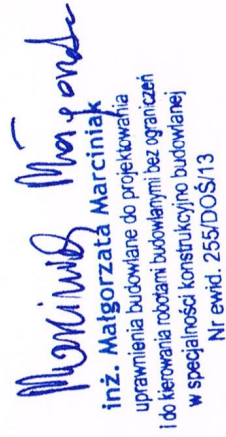 Marciniak Małgorzata
inż. Małgorzata Marciniak
uprawnienia budowlane do projektowania
i do kierowania robotami budowlanymi bez ograniczeń
w specjalności konstrukcyjno budowlanej
Nr ewid. 255/DOŚ/13